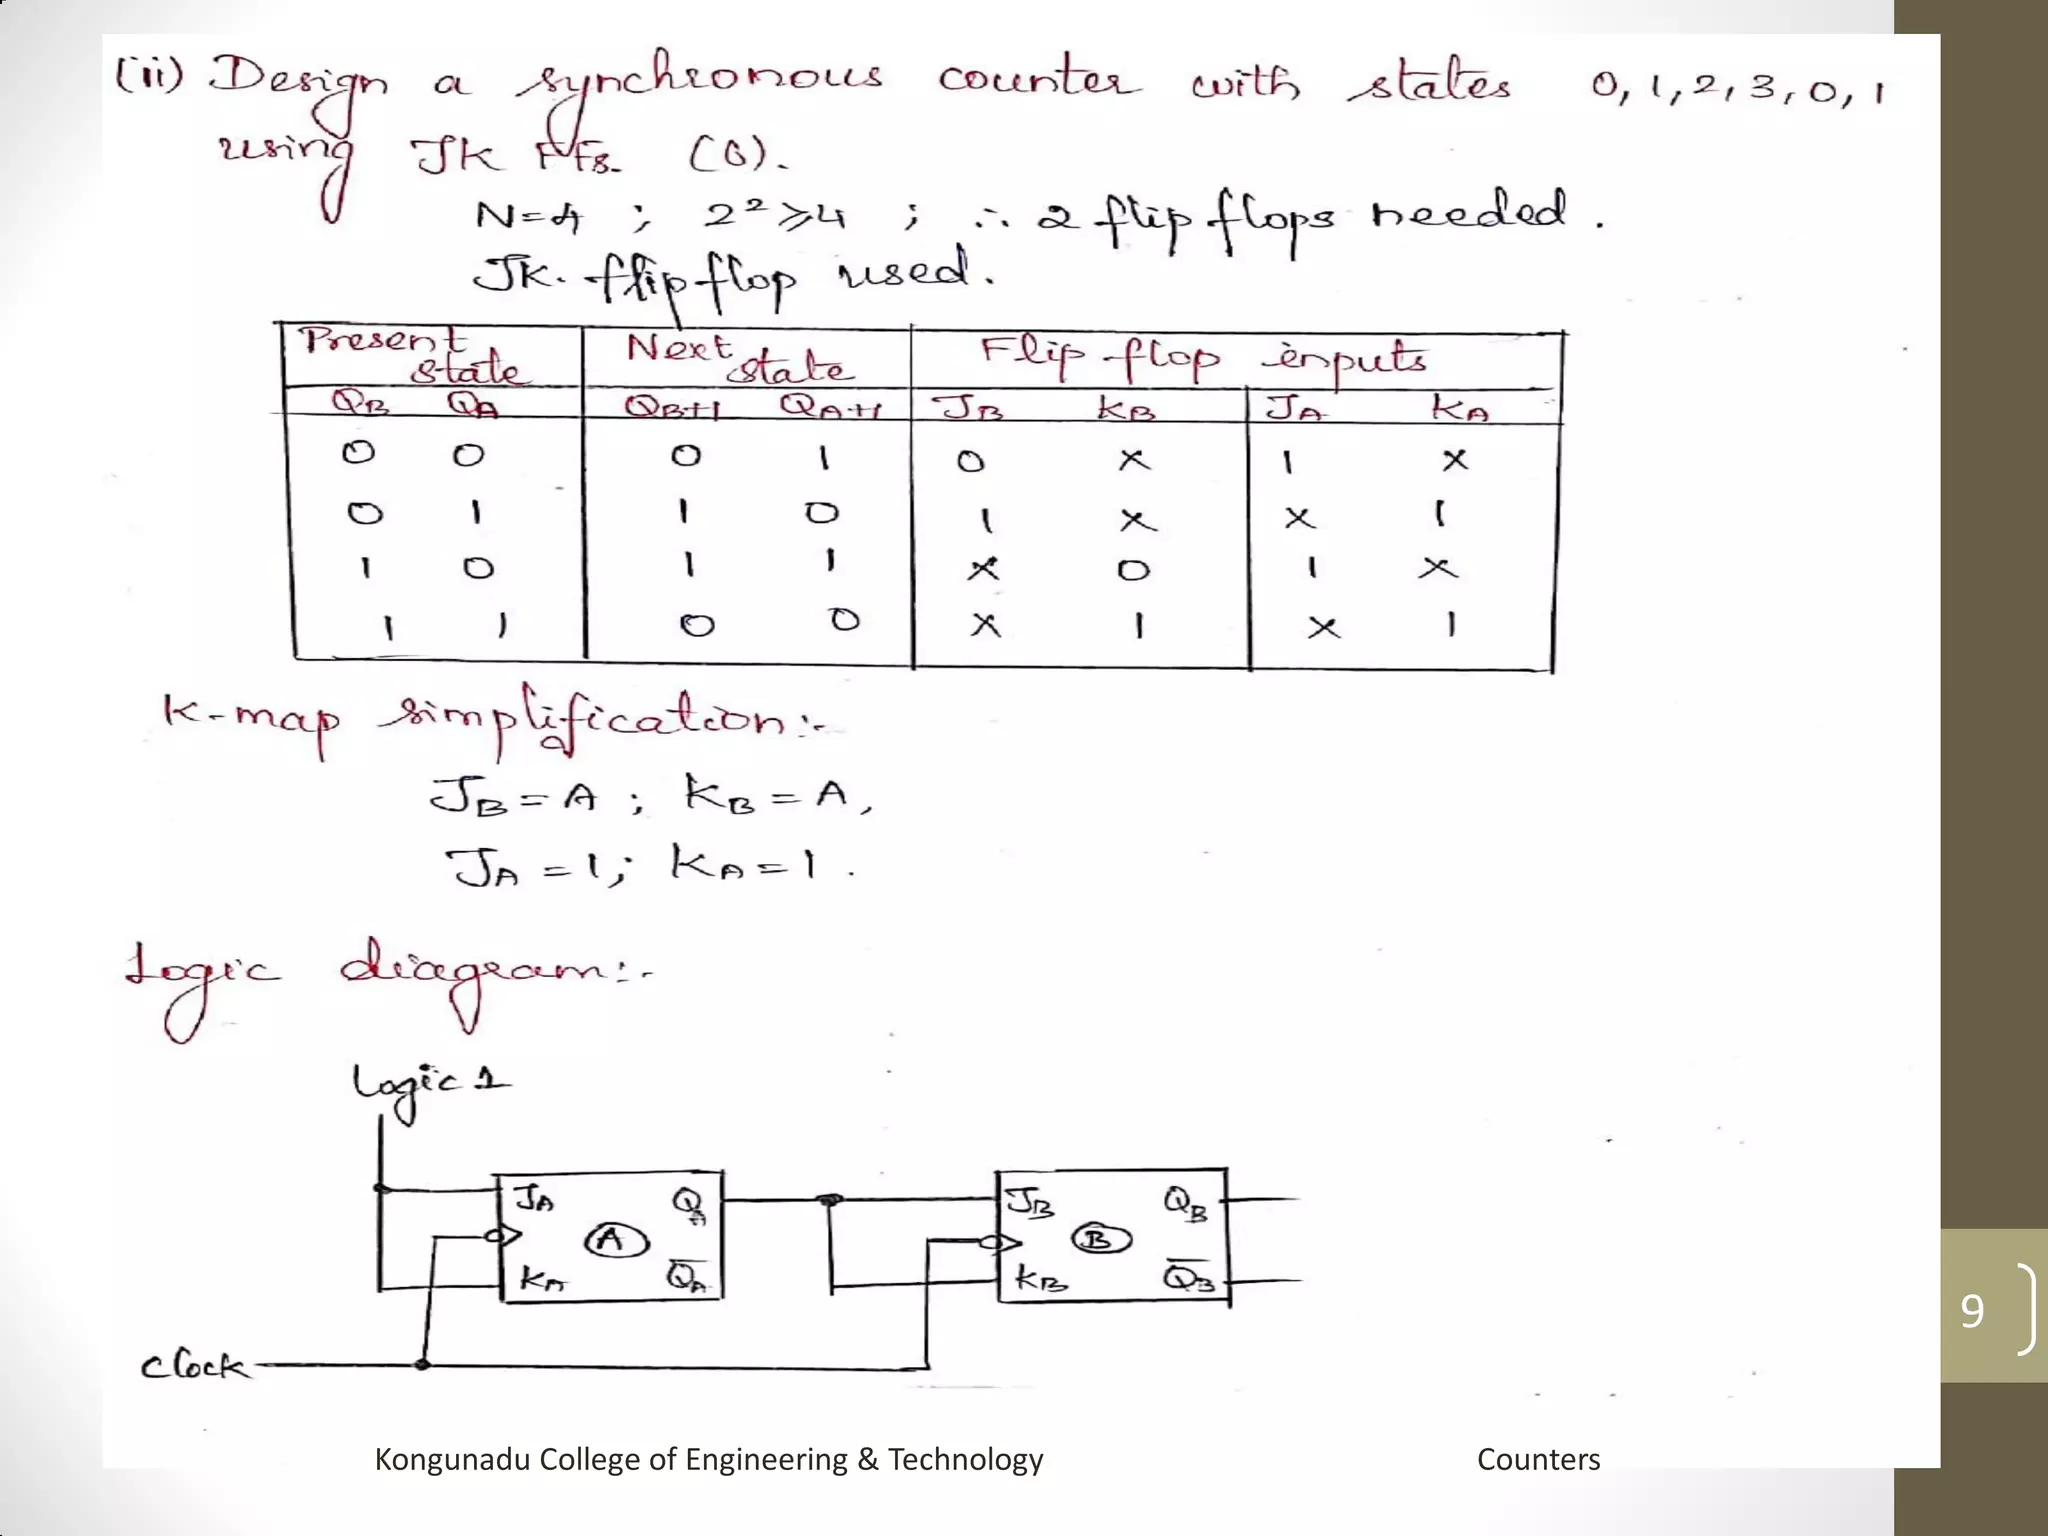 (ii) Design a synchronous counter with states 0, 1, 2, 3, 0, 1
using JK FFs. (6).
N=4 ; 2² ≥ 4 ; ∴ 2 flip flops needed.
JK. flip flop used.
Present state Next state Flip flop inputs
QB QA QB+1 QA+1 JB KB JA KA
0 0 0 1 0 x 1 x
0 1 1 0 1 x x 1
1 0 1 1 x 0 1 x
1 1 0 0 x 1 x 1
K-map simplification:-
JB = A ; KB = A,
JA = 1; KA = 1.
Logic diagram:-
Logic 1
JA QA JB QB
A B
KA Q̅A KB Q̅B
Clock
9
Kongunadu College of Engineering & Technology Counters